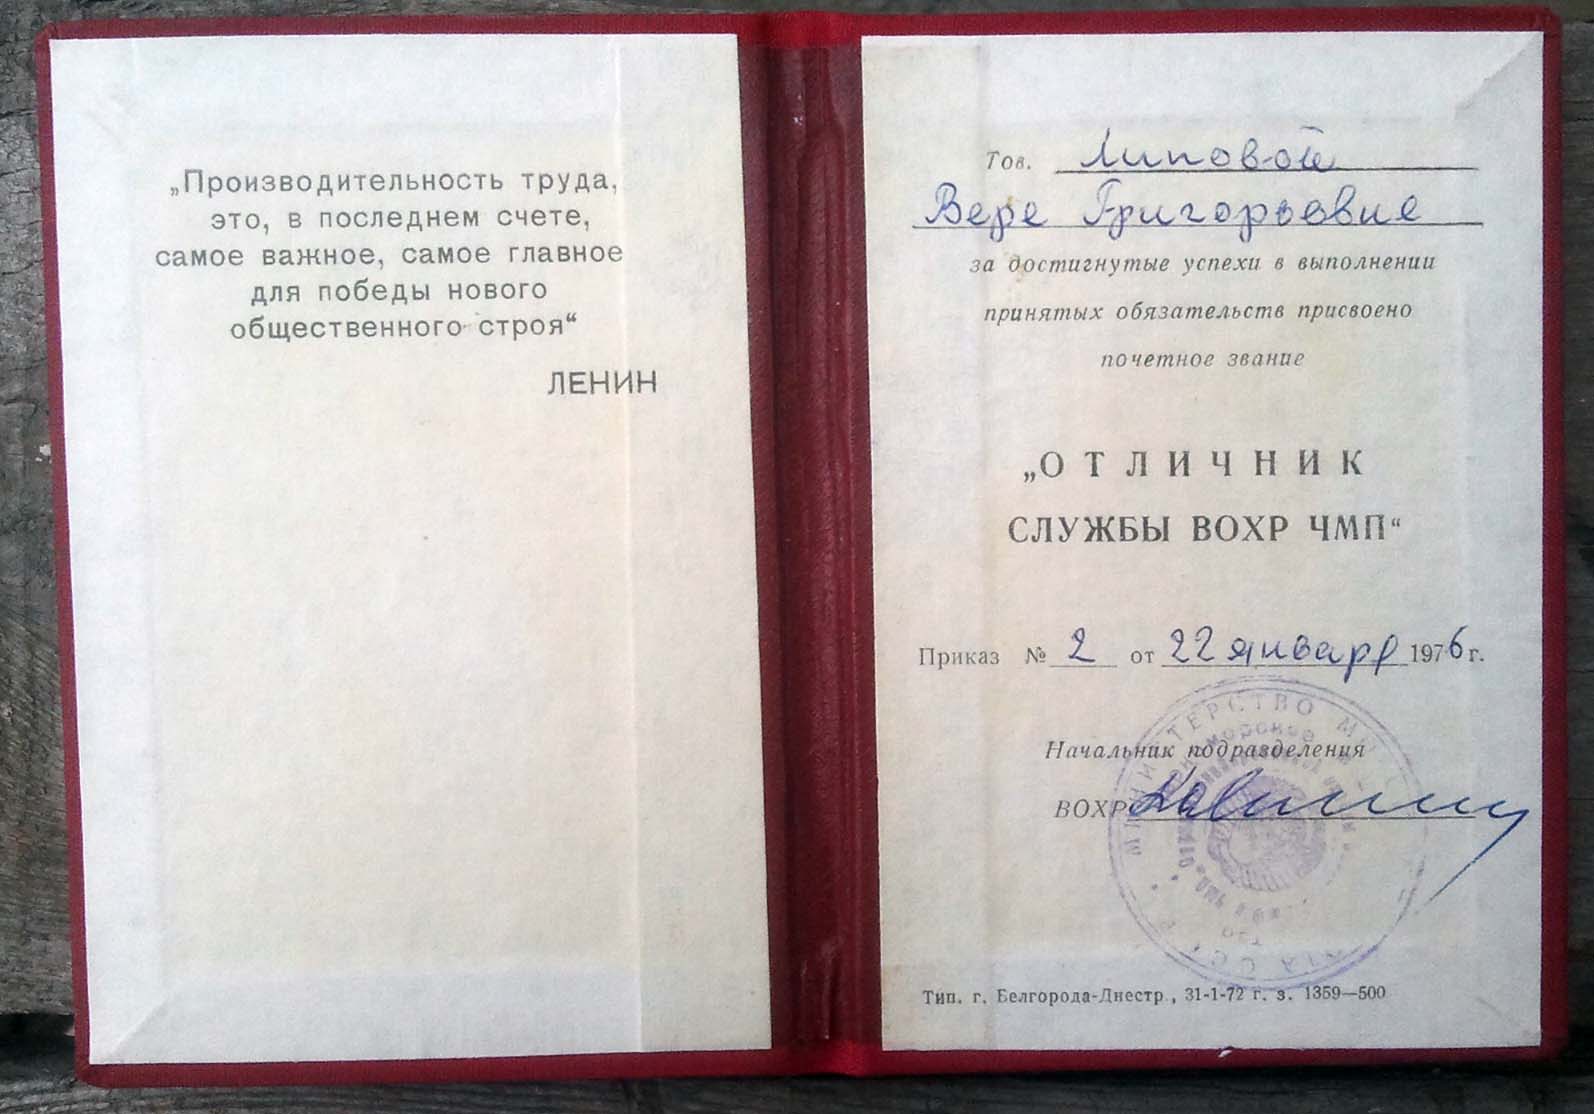 „Производительность труда,
это, в последнем счете,
самое важное, самое главное
для победы нового
общественного строя“
ЛЕНИН
Тов. Липовой
Вере Григорьевне
за достигнутые успехи в выполнении
принятых обязательств присвоено
почетное звание
„ОТЛИЧНИК
СЛУЖБЫ ВОХР ЧМП“
Приказ № 2 от 22 января 1976 г.
Начальник подразделения
ВОХР
МИНИСТЕРСТВО МОРСКОГО ФЛОТА СССР
Черноморское
Тип. г. Белгорода-Днестр., 31-1-72 г. з. 1359—500